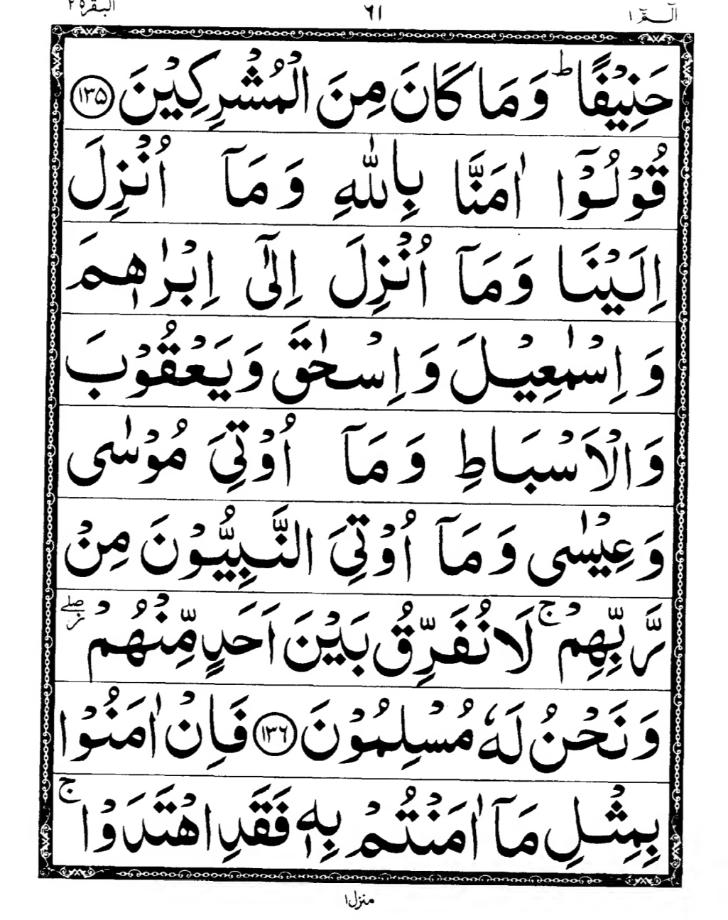 الٓمّٓ ١ ٦١ البقرة ٢
حَنِيْفًا ؕ وَمَا كَانَ مِنَ الْمُشْرِكِيْنَ ﴿۱۳۵﴾
قُوْلُوْٓا اٰمَنَّا بِاللّٰهِ وَمَآ اُنْزِلَ
اِلَيْنَا وَمَآ اُنْزِلَ اِلٰٓى اِبْرٰهٖمَ
وَاِسْمٰعِيْلَ وَاِسْحٰقَ وَيَعْقُوْبَ
وَالْاَسْبَاطِ وَمَآ اُوْتِيَ مُوْسٰى
وَعِيْسٰى وَمَآ اُوْتِيَ النَّبِيُّوْنَ مِنْ
رَّبِّهِمْ ۚ لَا نُفَرِّقُ بَيْنَ اَحَدٍ مِّنْهُمْ ۖ
وَنَحْنُ لَهٗ مُسْلِمُوْنَ ﴿۱۳۶﴾ فَاِنْ اٰمَنُوْا
بِمِثْلِ مَآ اٰمَنْتُمْ بِهٖ فَقَدِ اهْتَدَوْا ۚ
منزل ١